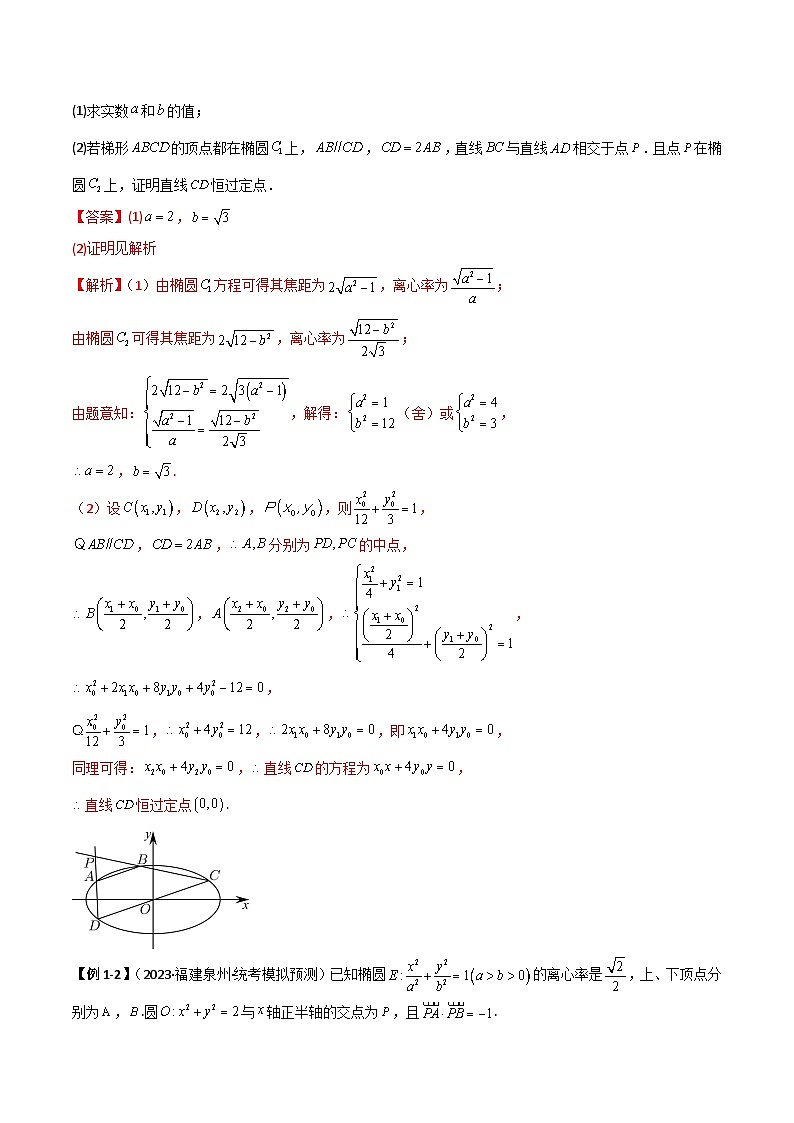 (1)求实数a和b的值;
(2)若梯形ABCD的顶点都在椭圆C₁上, AB//CD, CD = 2AB, 直线BC与直线AD相交于点P. 且点P在椭
圆C₂上, 证明直线CD恒过定点.
【答案】(1) a = 2, b = √3
(2)证明见解析
【解析】(1)由椭圆C₁方程可得其焦距为2√(a²−1), 离心率为√(a²−1)/a;
由椭圆C₂可得其焦距为2√(12−b²), 离心率为√(12−b²)/(2√3);
由题意知: {2√(12−b²) = 2√(3(a²−1)), √(a²−1)/a = √(12−b²)/(2√3)}, 解得: {a² = 1, b² = 12}(舍)或{a² = 4, b² = 3},
∴ a = 2, b = √3.
(2)设C(x₁,y₁), D(x₂,y₂), P(x₀,y₀), 则x₀²/12 + y₀²/3 = 1,
Q AB//CD, CD = 2AB, ∴ A,B分别为PD,PC的中点,
∴ B((x₁+x₀)/2, (y₁+y₀)/2), A((x₂+x₀)/2, (y₂+y₀)/2), ∴ {x₁²/4 + y₁² = 1, ((x₁+x₀)/2)²/4 + ((y₁+y₀)/2)² = 1},
∴ x₀² + 2x₁x₀ + 8y₁y₀ + 4y₀² − 12 = 0,
Q x₀²/12 + y₀²/3 = 1, ∴ x₀² + 4y₀² = 12, ∴ 2x₁x₀ + 8y₁y₀ = 0, 即x₁x₀ + 4y₁y₀ = 0,
同理可得: x₂x₀ + 4y₂y₀ = 0, ∴ 直线CD的方程为x₀x + 4y₀y = 0,
∴ 直线CD恒过定点(0,0).
y
P
B
A
C
O
x
D
【例1-2】(2023·福建泉州·统考模拟预测)已知椭圆E: x²/a² + y²/b² = 1(a > b > 0)的离心率是√2/2, 上、下顶点分
别为A, B.圆O: x² + y² = 2与x轴正半轴的交点为P, 且PA·PB = −1.